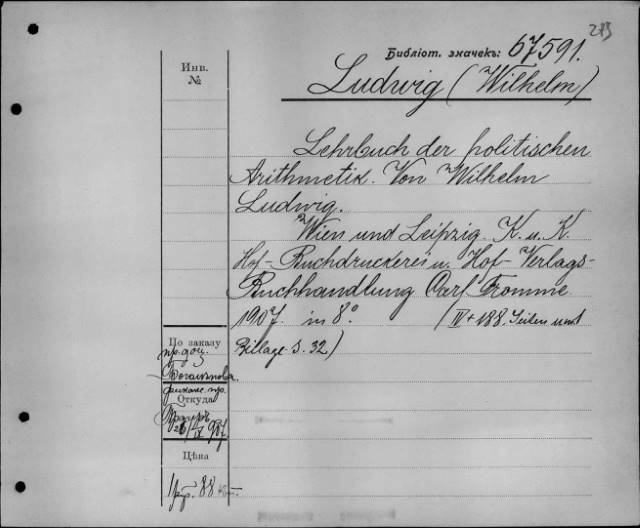 213
Библіот. значекъ: 67591.
Инв.
№
Ludwig (Wilhelm)
Lehrbuch der politischen
Arithmetik. Von Wilhelm
Ludwig.
Wien und Leipzig. K. u. K.
Hof-Buchdruckerei u. Hof-Verlags-
Buchhandlung Carl Fromme.
1907. in 8° (IV+188. Seiten und
Billage S. 32)
По заказу
пр. доц.
Откуда
Цѣна
1 руб. 88